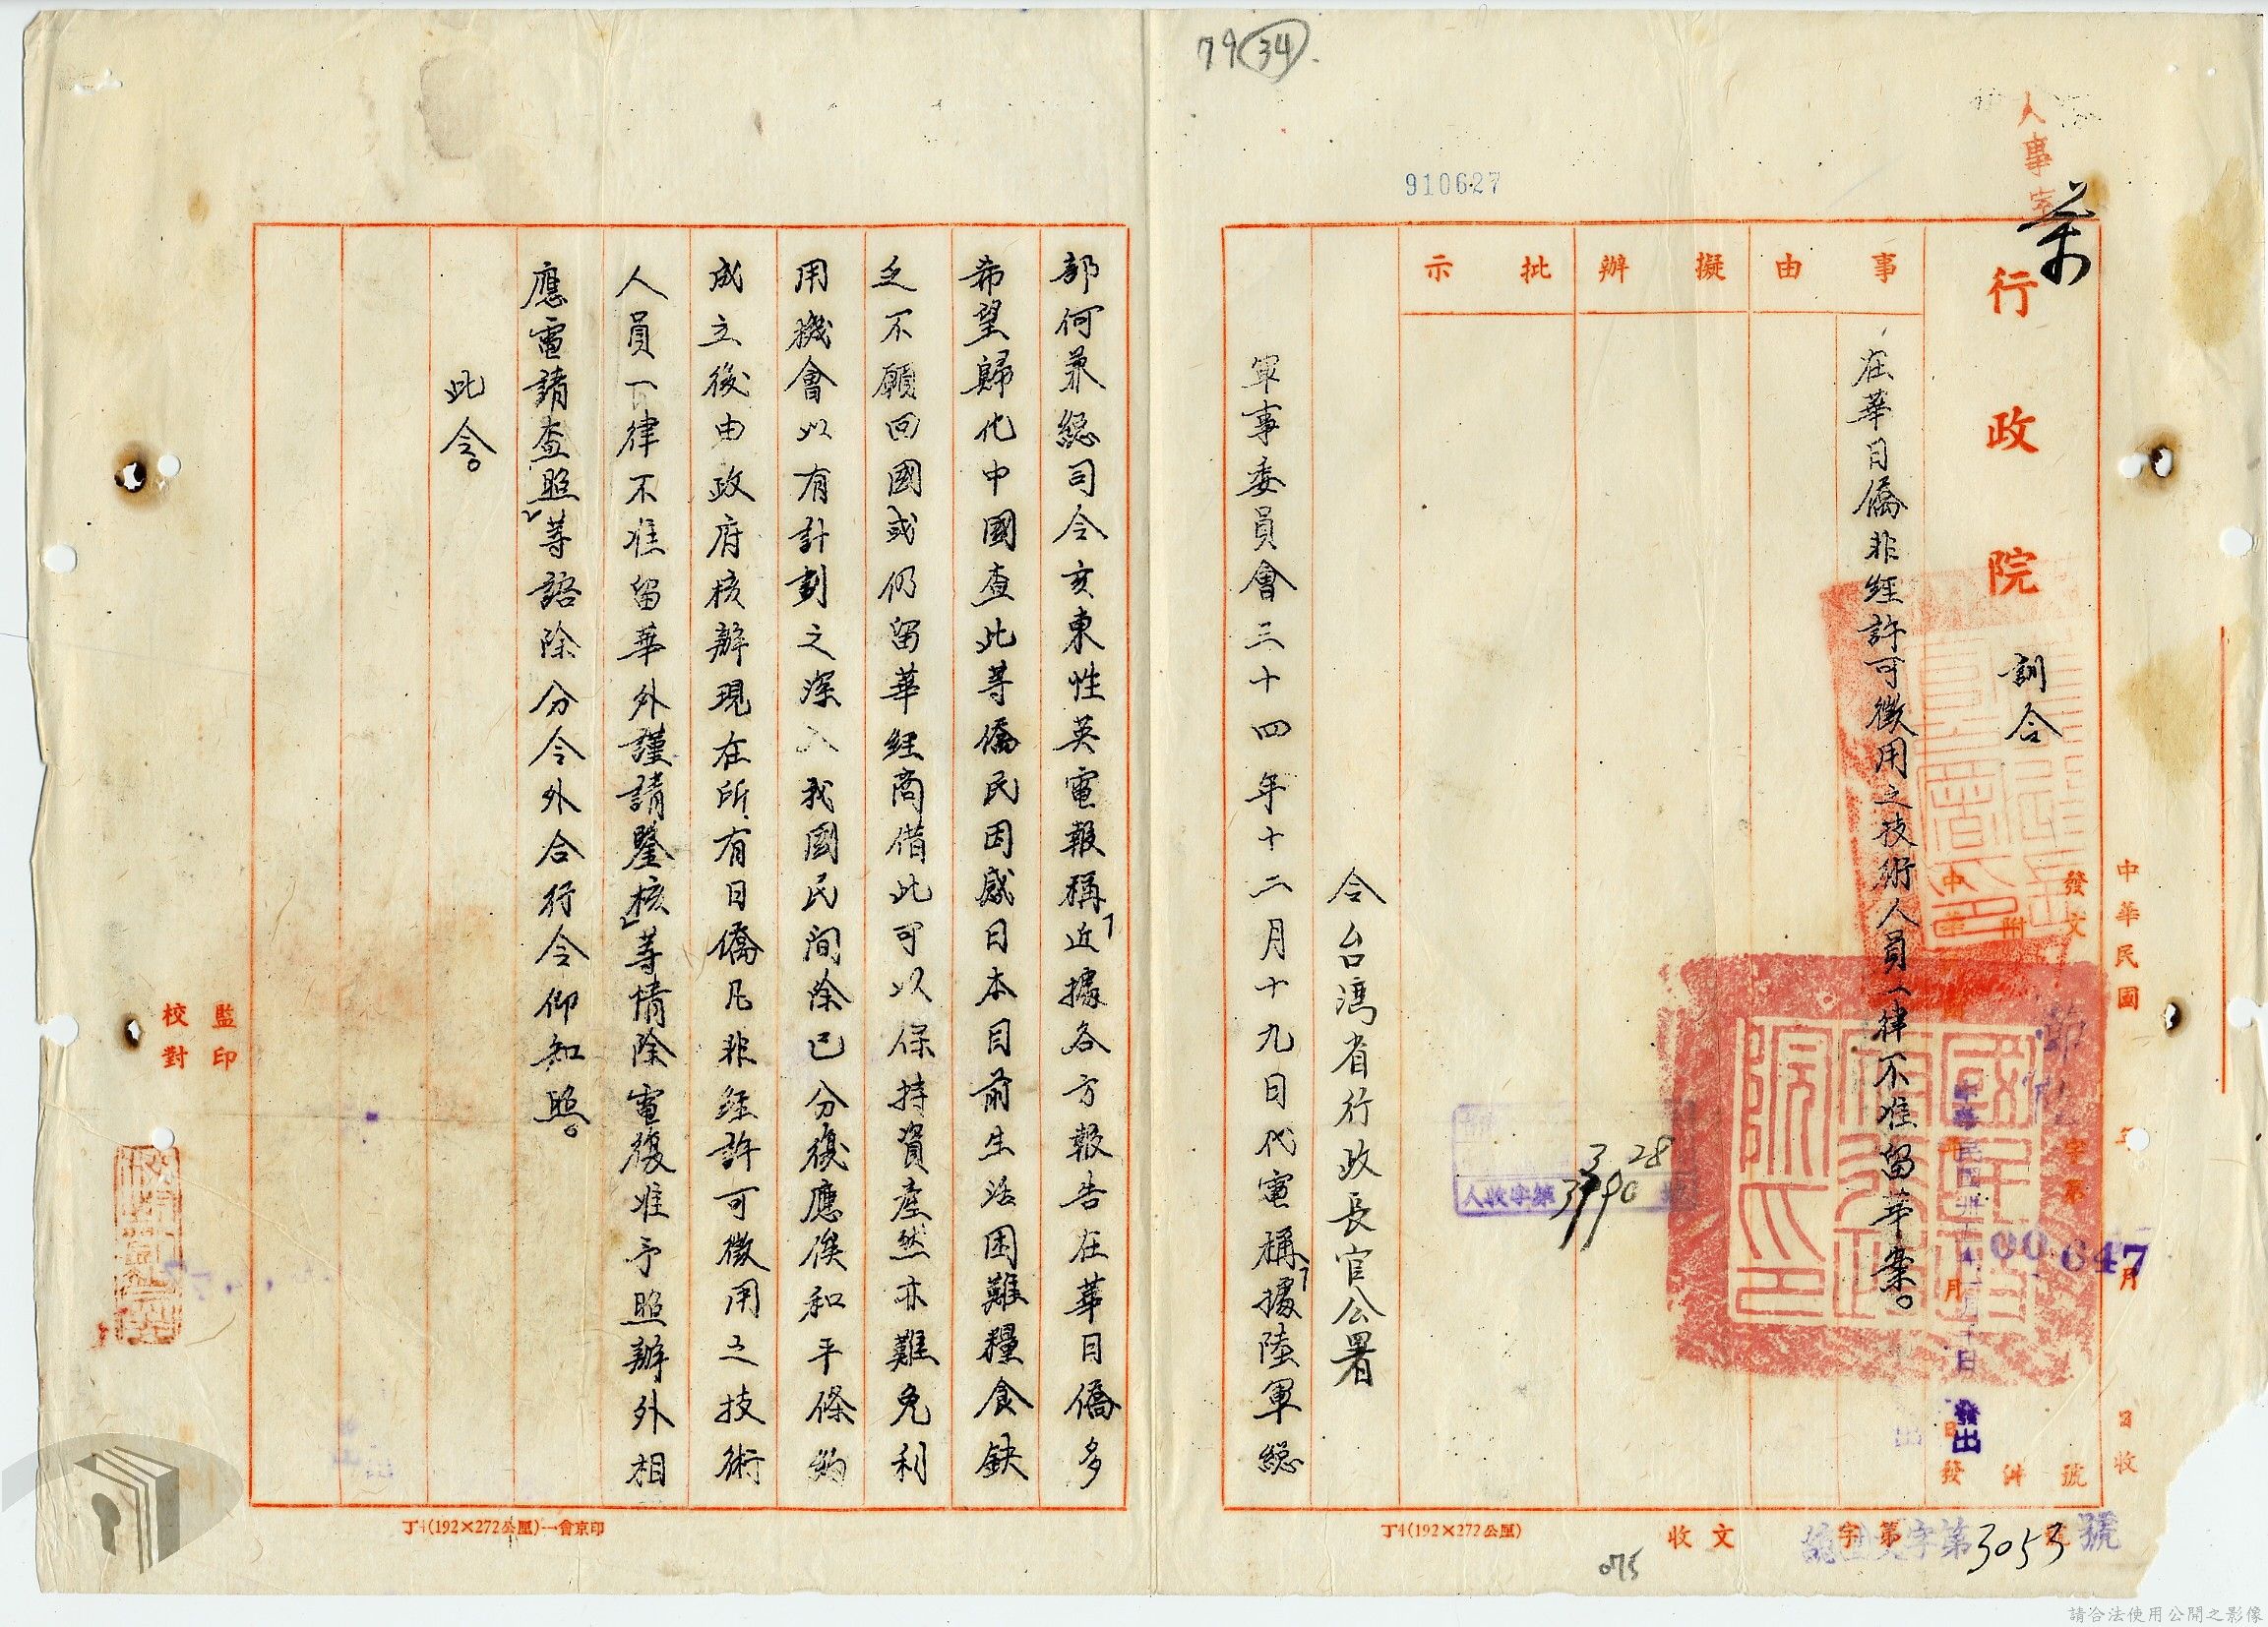 79 34
910627
人事室
行政院 訓令
事由
擬辦
批示
在華日僑非經許可徵用之技術人員一律不准留華案。
中華民國 年 月 日收
發文 字第 號
00647
附 件
中華民國卅五年 月 日發出
3 28
人收字第3790號
令台灣省行政長官公署
軍事委員會三十四年十二月十九日代電稱「據陸軍總
部何兼總司令亥東性英電報稱「近據各方報告在華日僑多
希望歸化中國查此等僑民因感日本目前生活困難糧食缺
乏不願回國或仍留華經商借此可以保持資產然亦難免利
用機會以有計劃之深入我國民間除已分復應俟和平條約
成立後由政府核辦現在所有日僑凡非經許可徵用之技術
人員一律不准留華外謹請鑒核」等情除電復准予照辦外相
應電請查照」等語除分令外合行令仰知照。
此令。
監印
校對
丁4(192×272公厘)一會京印
丁4(192×272公厘)
收文 字第3053號
075
請合法使用公開之影像